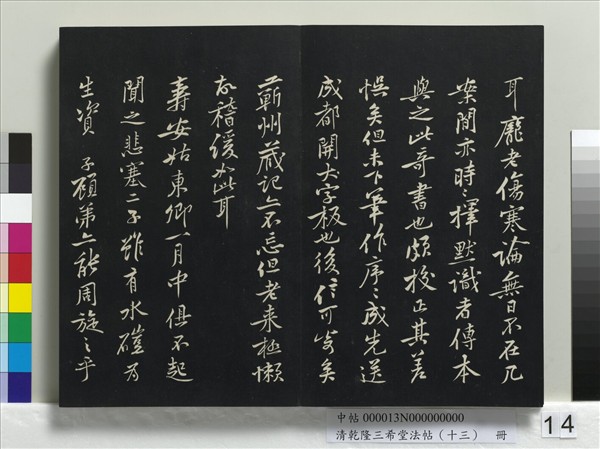 耳龐老傷寒論無日不在几
案間亦時時擇默識者傳本
與之此奇書也頗校正其差
悞矣但未下筆作序序成先送
成都開大字板也後信可寄矣
蘄州藏記亦不忘但老来極懶
故稽緩如此耳
壽安姑東卿一月中俱不起
聞之悲塞二子雖有水磑為
生資 子顧弟亦能周旋之乎
中帖 000013N000000000
清乾隆三希堂法帖（十三） 冊
14